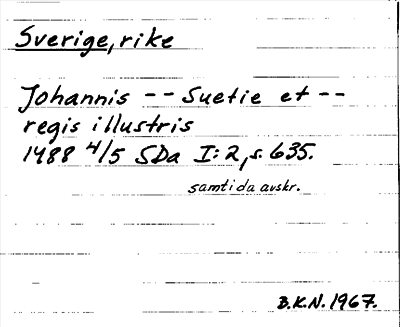 Sverige, rike
Johannis -- Suetie et --
regis illustris
1488 4/5 SDa I:2, s. 635.
samtida avskr.
B.K.N. 1967.